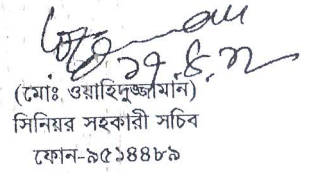 (মোঃ ওয়াহিদুজ্জামান)
সিনিয়র সহকারী সচিব
ফোন-৯৫১৪৪৮৯